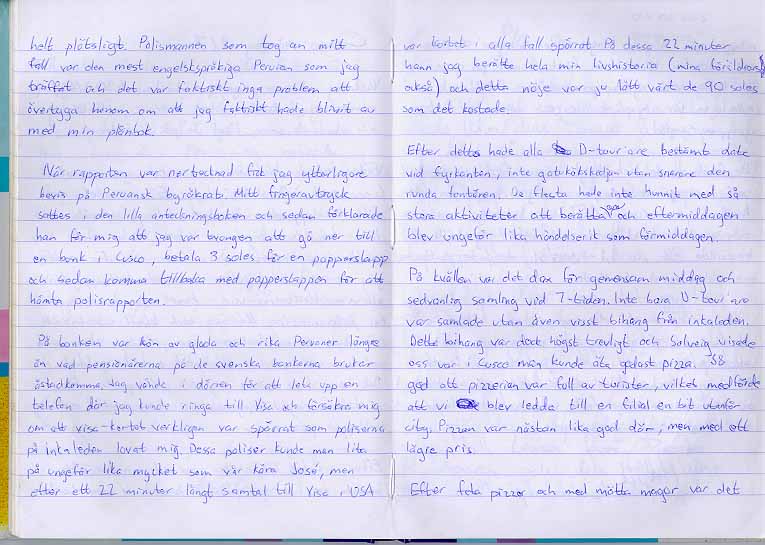 helt plötsligt. Polismannen som tog an mitt
fall var den mest engelskspråkiga Peruan som jag
träffat och det var faktiskt inga problem att
övertyga honom om att jag faktiskt hade blivit av
med min plånbok.
När rapporten var nertecknad fick jag ytterligare
bevis på Peruansk byråkrati. Mitt fingeravtryck
sattes i den lilla anteckningsboken och sedan förklarade
han för mig att jag var tvungen att gå ner till
en bank i Cusco, betala 3 soles för en papperslapp
och sedan komma tillbaka med papperslappen för att
hämta polisrapporten.
På banken var kön av glada och rika Peruaner längre
än vad pensionärerna på de svenska bankerna brukar
åstadkomma. Jag vände i dörren för att leta upp en
telefon där jag kunde ringa till Visa och försäkra mig
om att visa-kortet verkligen var spärrat som poliserna
på inkaleden lovat mig. Dessa poliser kunde man lita
på ungefär lika mycket som vår kära José, men
efter ett 22 minuter långt samtal till Visa i USA
var kortet i alla fall spärrat. På dessa 22 minuter
hann jag berätta hela min livshistoria (mina föräldrars
också) och detta nöje var ju lätt värt de 90 soles
som det kostade.
Efter detta hade alla D-tour'are bestämt date
vid fyrkanten, inte gatukökskedjan utan snarare den
runda fontänen. De flesta hade inte hunnit med så
stora aktiviteter att berätta om och eftermiddagen
blev ungefär lika händelserik som förmiddagen.
På kvällen var det dax för gemensam middag och
sedvanlig samling vid 7-tiden. Inte bara D-tour'are
var samlade utan även visst bihang från inkaleden.
Detta bihang var dock högst trevligt och Solveig visade
oss var i Cusco man kunde äta godast pizza. Så
god att pizzerian var full av turister, vilket medförde
att vi blev ledda till en filial en bit utanför
city. Pizzan var nästan lika god där, men med ett
lägre pris.
Efter feta pizzor och med mätta magar var det